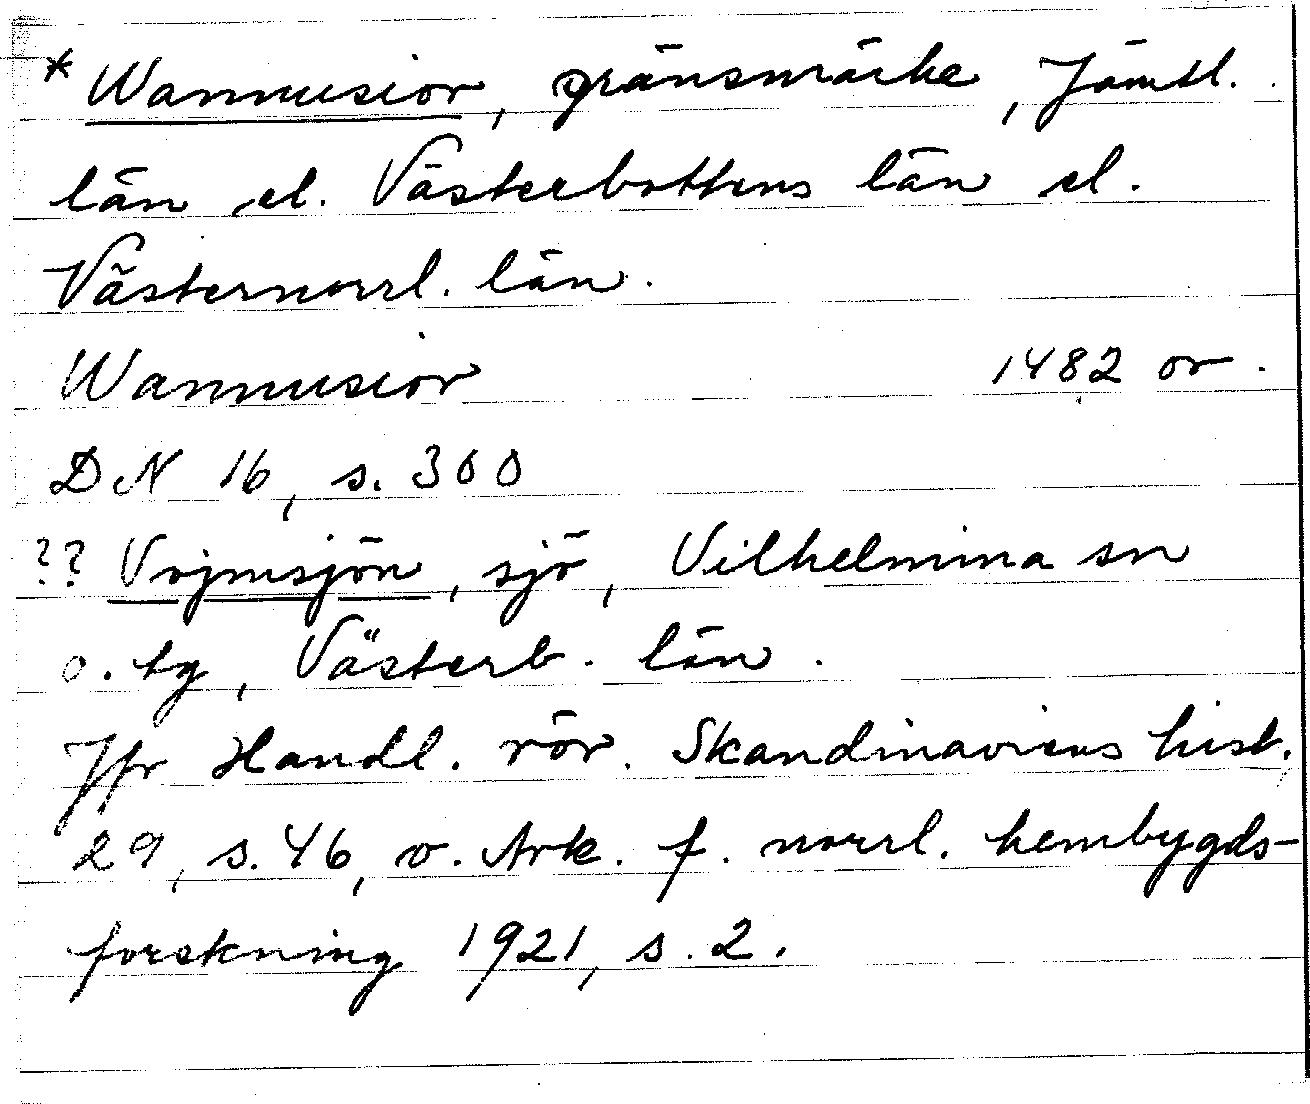 * Wannusior, gränsmärke, Jämtl.
län el. Västerbottens län el.
Västernorrl. län.
Wannusior 1482 or.
DN 16, s. 300
?? Vojmsjön, sjö, Vilhelmina sn
o. tg, Västerb. län.
Jfr Handl. rör. Skandinaviens hist.
29, s. 46, o. Ark. f. norrl. hembygds-
forskning 1921, s. 2.